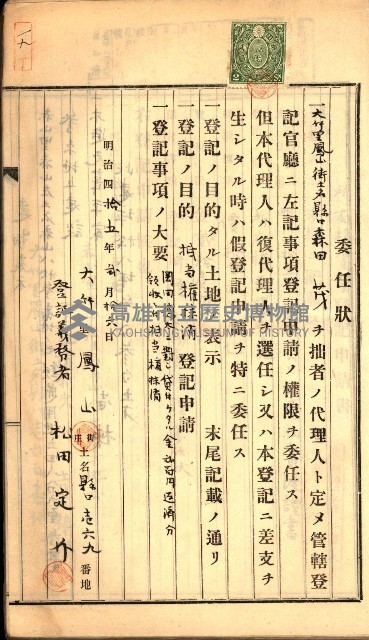 委任狀
一大竹里鳳山街土名縣口森田茂ヲ拙者ノ代理人ト定メ管轄登
記官廳ニ左記事項登記申請ノ權限ヲ委任ス
但本代理人ハ復代理人ヲ選任シ又ハ本登記ニ差支ヲ
生シタル時ハ假登記申請ヲ特ニ委任ス
一登記ノ目的タル土地ノ表示 末尾記載ノ通リ
一登記ノ目的 抵當權抹消 登記申請
一登記事項ノ大要
金 百円返濟
抵當權抹消
明治四拾五年貳月拾六日
大竹里鳳山街土名縣口壱六九番地
登記義務者 松田定
高雄市立歷史博物館
KAOHSIUNG MUSEUM OF HISTORY